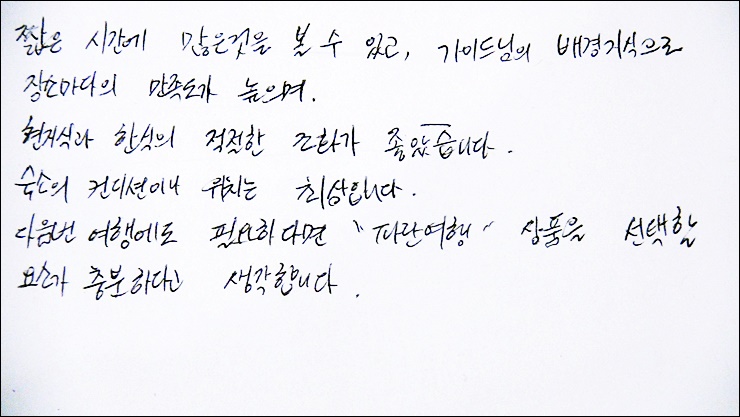 짧은 시간에 많은것을 볼 수 있고, 가이드님의 배경지식으로
장소마다의 만족도가 높으며.
현지식과 한식의 적절한 조화가 좋았습니다.
숙소의 컨디션이나 위치는 최상입니다.
다음번 여행에도 필요하다면 "파란여행" 상품을 선택할
요소가 충분하다고 생각합니다.